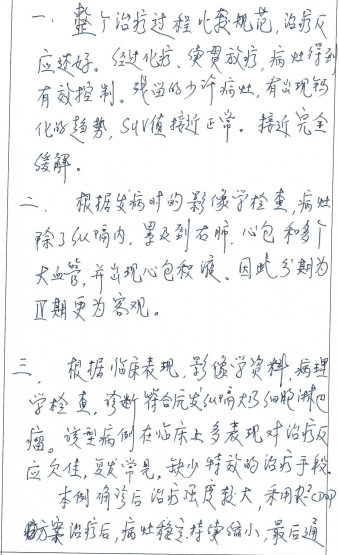 一. 整个治疗过程比较规范,治疗反
应还好。经过化疗、续贯放疗,病灶得到
有效控制。残留的少许病灶,有出现钙
化的趋势,SUV值接近正常。接近完全
缓解。
二、根据发病时的影像学检查,病灶
除了纵隔内,累及到右肺、心包和多个
大血管,并出现心包积液。因此分期为
IV期更为客观。
三、根据临床表现,影像学资料,病理
学检查,诊断符合原发纵隔大B细胞淋巴
瘤。该型病例在临床上多表现对治疗反
应欠佳,复发常见,缺少特效的治疗手段。
本例确诊后治疗强度较大,采用
方案治疗后,病灶稳定持续缩小,最后通